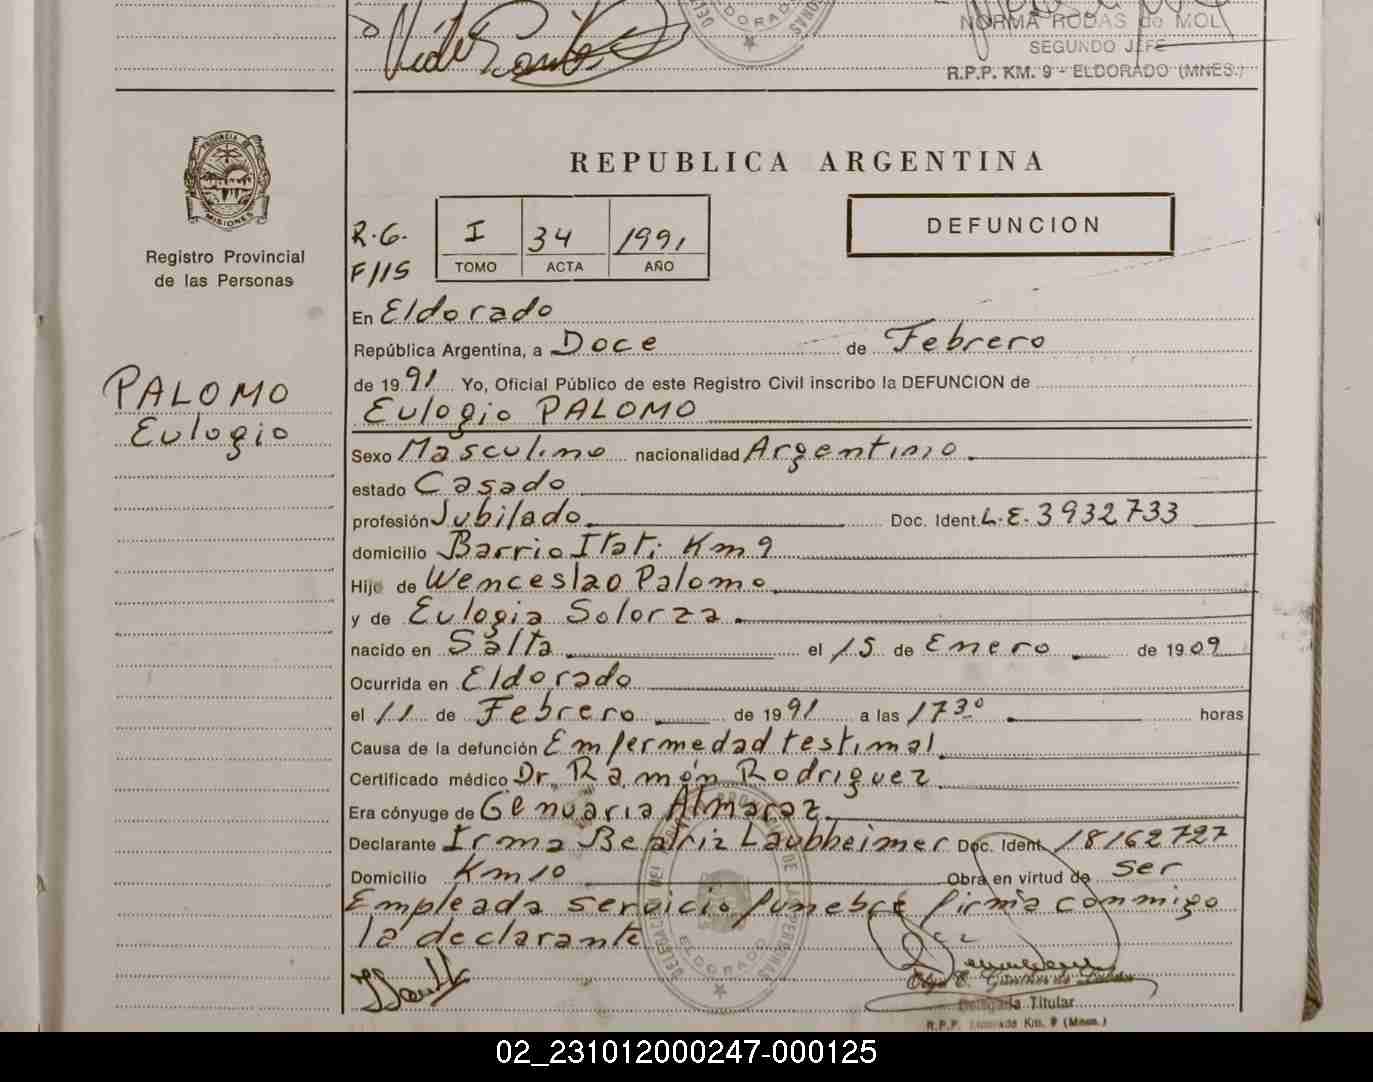 ELDORADO
NORMA RODAS de MOL
SEGUNDO JEFE
R.P.P. KM. 9 - ELDORADO (MNES.)
PROVINCIA DE
MISIONES
Registro Provincial
de las Personas
PALOMO
Eulogio
REPUBLICA ARGENTINA
R.G.
F/115
I 34 1991
TOMO ACTA AÑO
DEFUNCION
En Eldorado
República Argentina, a Doce de Febrero
de 1991 Yo, Oficial Público de este Registro Civil inscribo la DEFUNCION de
Eulogio PALOMO
Sexo Masculino nacionalidad Argentino
estado Casado
profesión Jubilado Doc. Ident. L.E. 3932733
domicilio Barrio Itati Km 9
Hijo de Wenceslao Palomo
y de Eulogia Solorza
nacido en Salta el 15 de Enero de 1909
Ocurrida en Eldorado
el 11 de Febrero de 1991 a las 17 30 horas
Causa de la defunción Emfermedad testimal
Certificado médico Dr. Ramón Rodriguez
Era cónyuge de Genuaria Almaraz
Declarante Irma Beatriz Laubheimer Doc. Ident. 18162727
Domicilio Km 10 Obra en virtud de ser
Empleada servicio funebre firma conmigo
la declarante
ELDORADO
Delegada Titular
R.P.P. Eldorado Km. 9 (Mnes.)
02_231012000247-000125